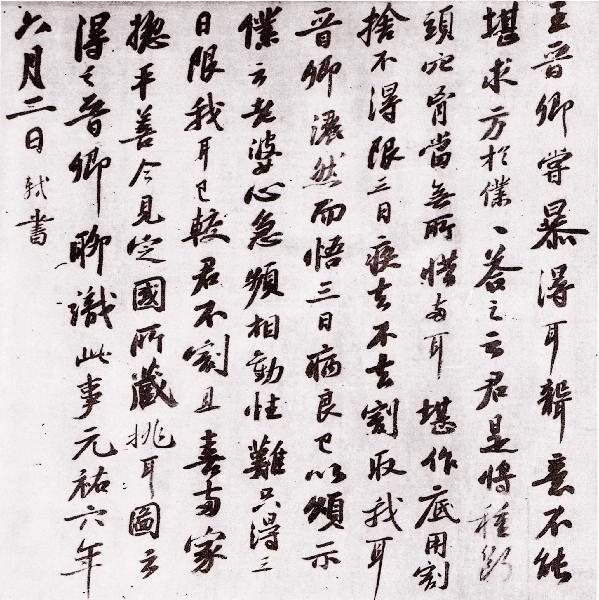 王晉卿甞暴得耳聾意不能
堪求方於僕〻答之云君是將種斷
頭穴胷當無所惜兩耳堪作底用割
捨不得限三日疾去不去割取我耳
晉卿灑然而悟三日病良已以頌示
僕云老婆心急頻相勸性難只得三
日限我耳已較君不割且喜兩家
揔平善今見定國所藏挑耳圖云
得之晉卿聊識此事元祐六年
六月二日軾書